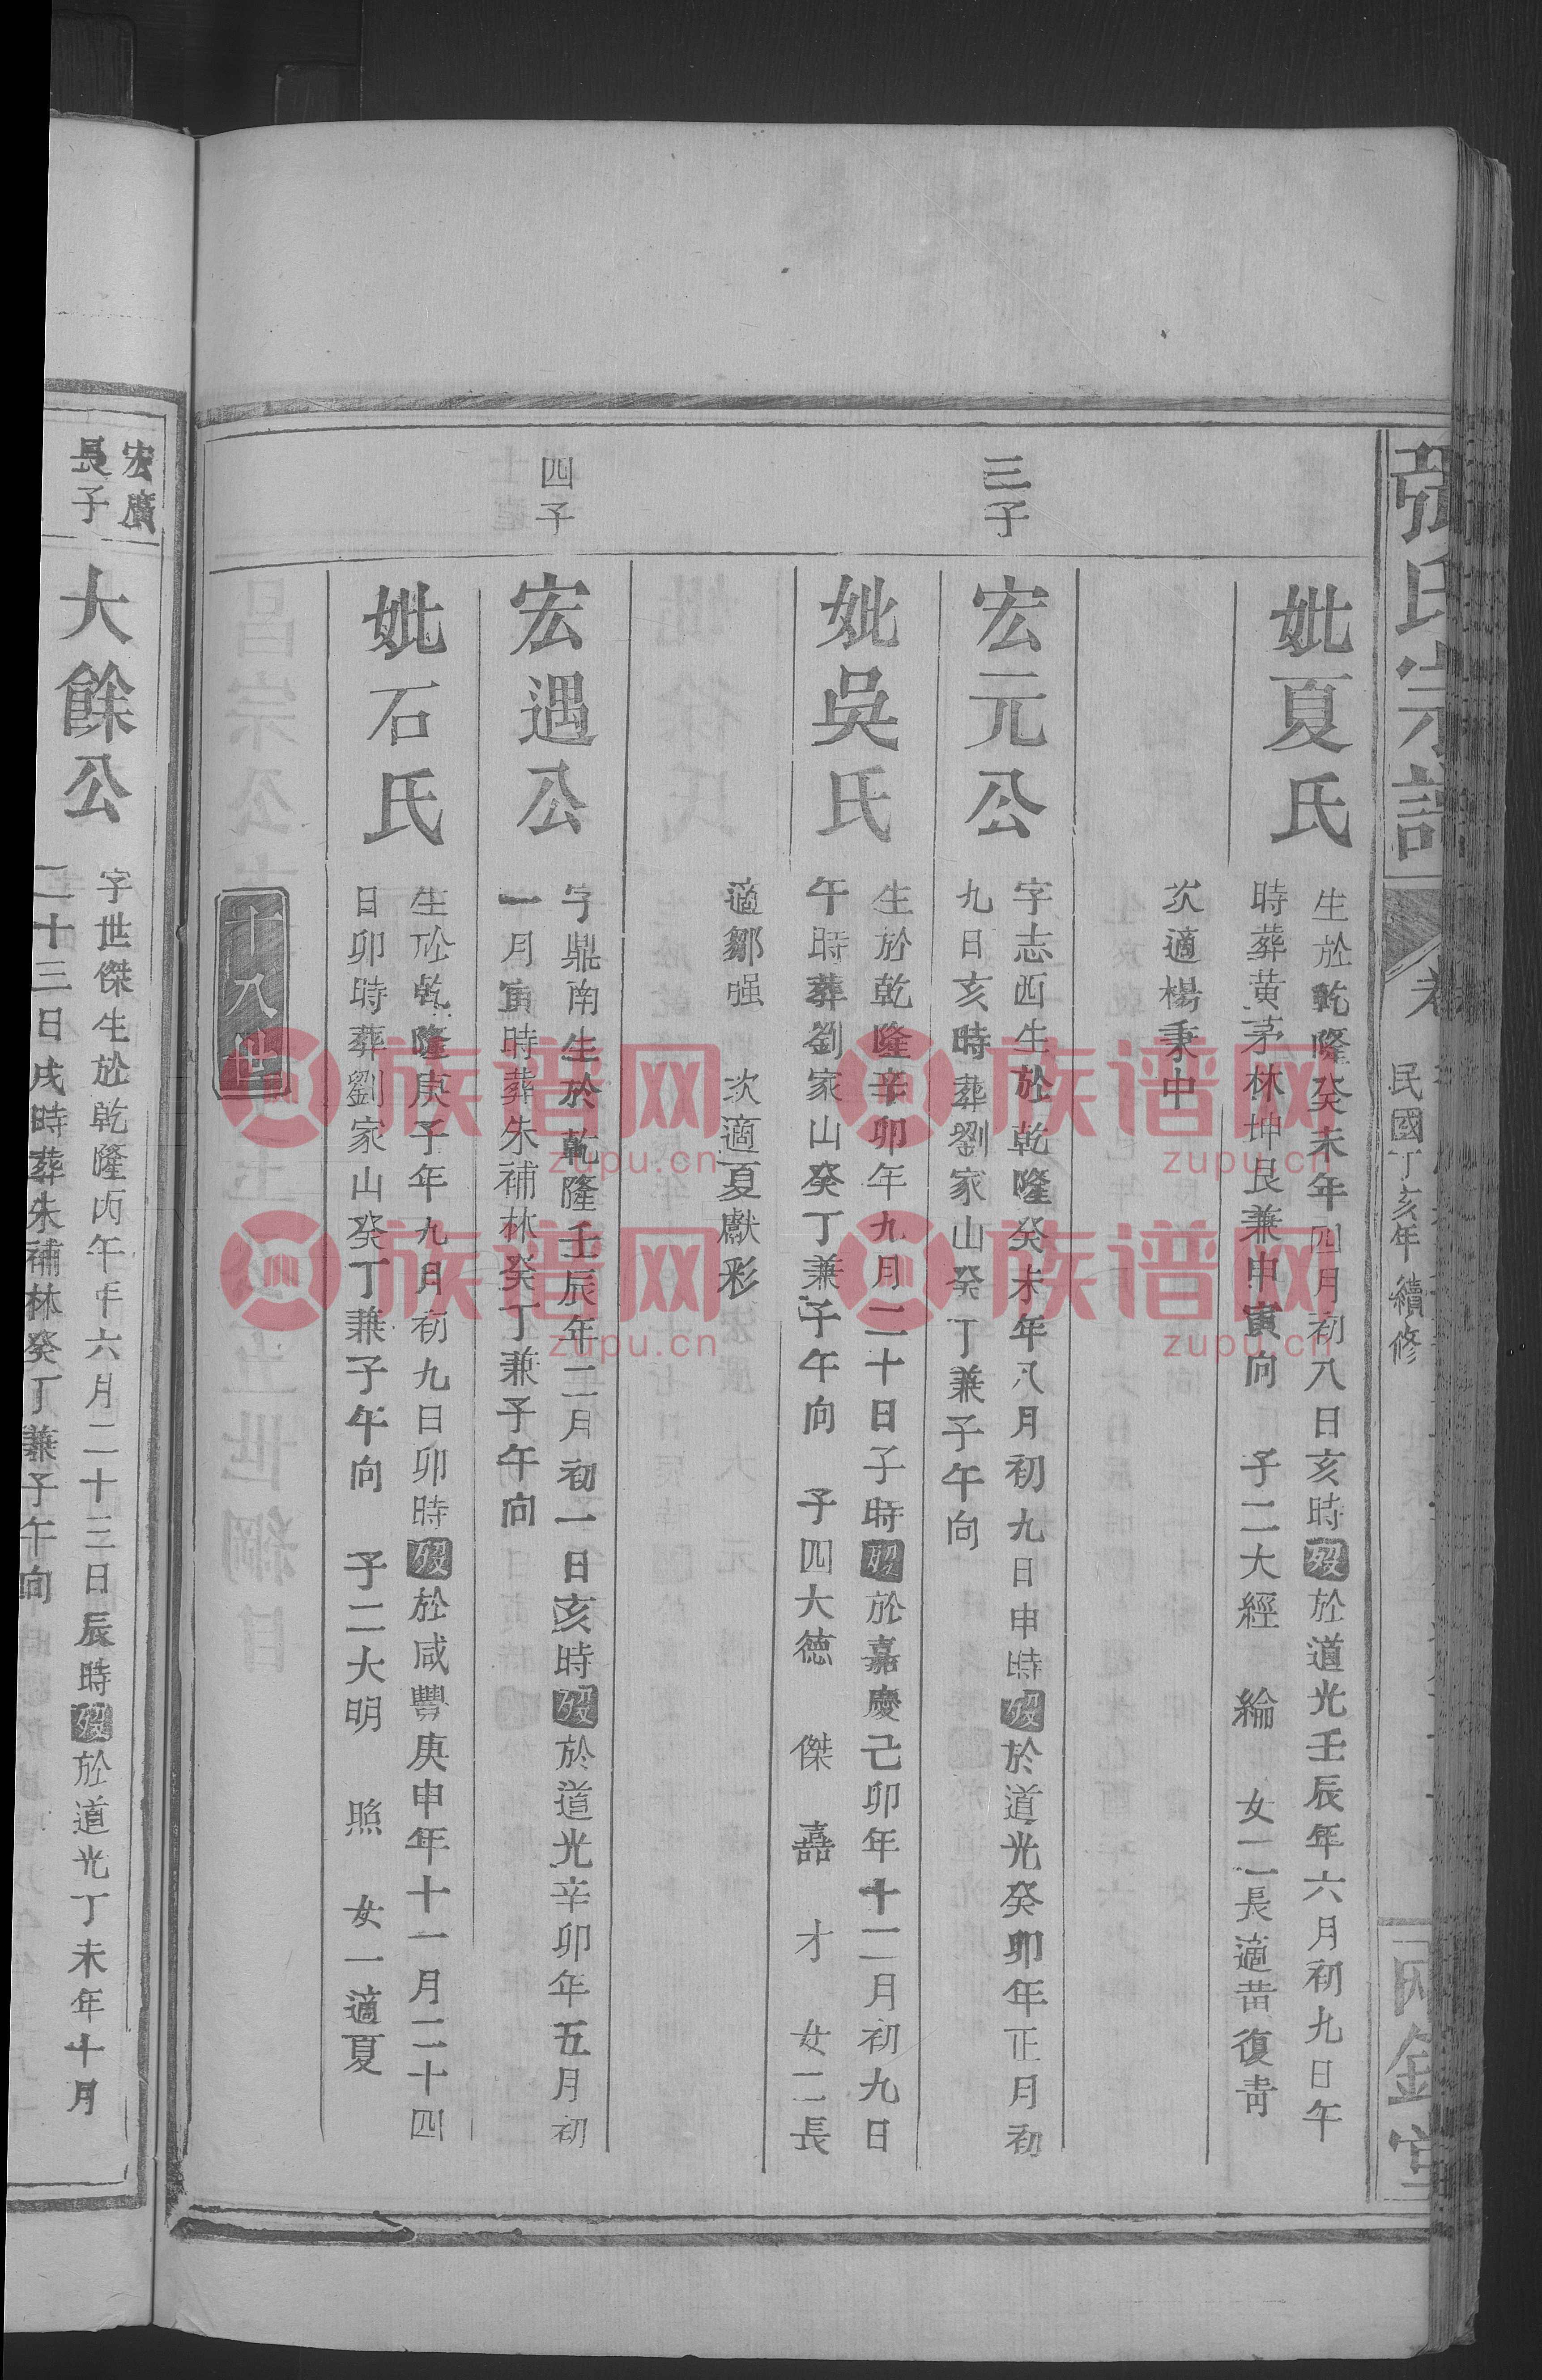 張氏宗譜
卷
民國丁亥年續修
兩銘堂
妣夏氏
生於乾隆癸未年四月初八日亥時歿於道光壬辰年六月初九日午
時葬黄茅林坤艮兼申寅向 子二大經 綸 女二長適黄復青
次適楊秉中
三子
宏元公
字志西生於乾隆癸未年八月初九日申時歿於道光癸卯年正月初
九日亥時葬劉家山癸丁兼子午向
妣吳氏
生於乾隆辛卯年九月二十日子時歿於嘉慶己卯年十二月初九日
午時葬劉家山癸丁兼子午向 子四大德 傑 嚞 才 女二長
適鄒强 次適夏獻彩
四子
宏遇公
字鼎南生於乾隆壬辰年二月初一日亥時歿於道光辛卯年五月初
一月寅時葬朱補林癸丁兼子午向
妣石氏
生於乾隆庚子年九月初九日卯時歿於咸豐庚申年十一月二十四
日卯時葬劉家山癸丁兼子午向 子二大明 照 女一適夏
十八世
宏廣
長子
大餘公
字世傑生於乾隆丙午年六月二十三日辰時歿於道光丁未年十月
二十三日戌時葬朱補林癸丁兼子午向
族谱网
zupu.cn
族谱网
zupu.cn
族谱网
zupu.cn
族谱网
zupu.cn